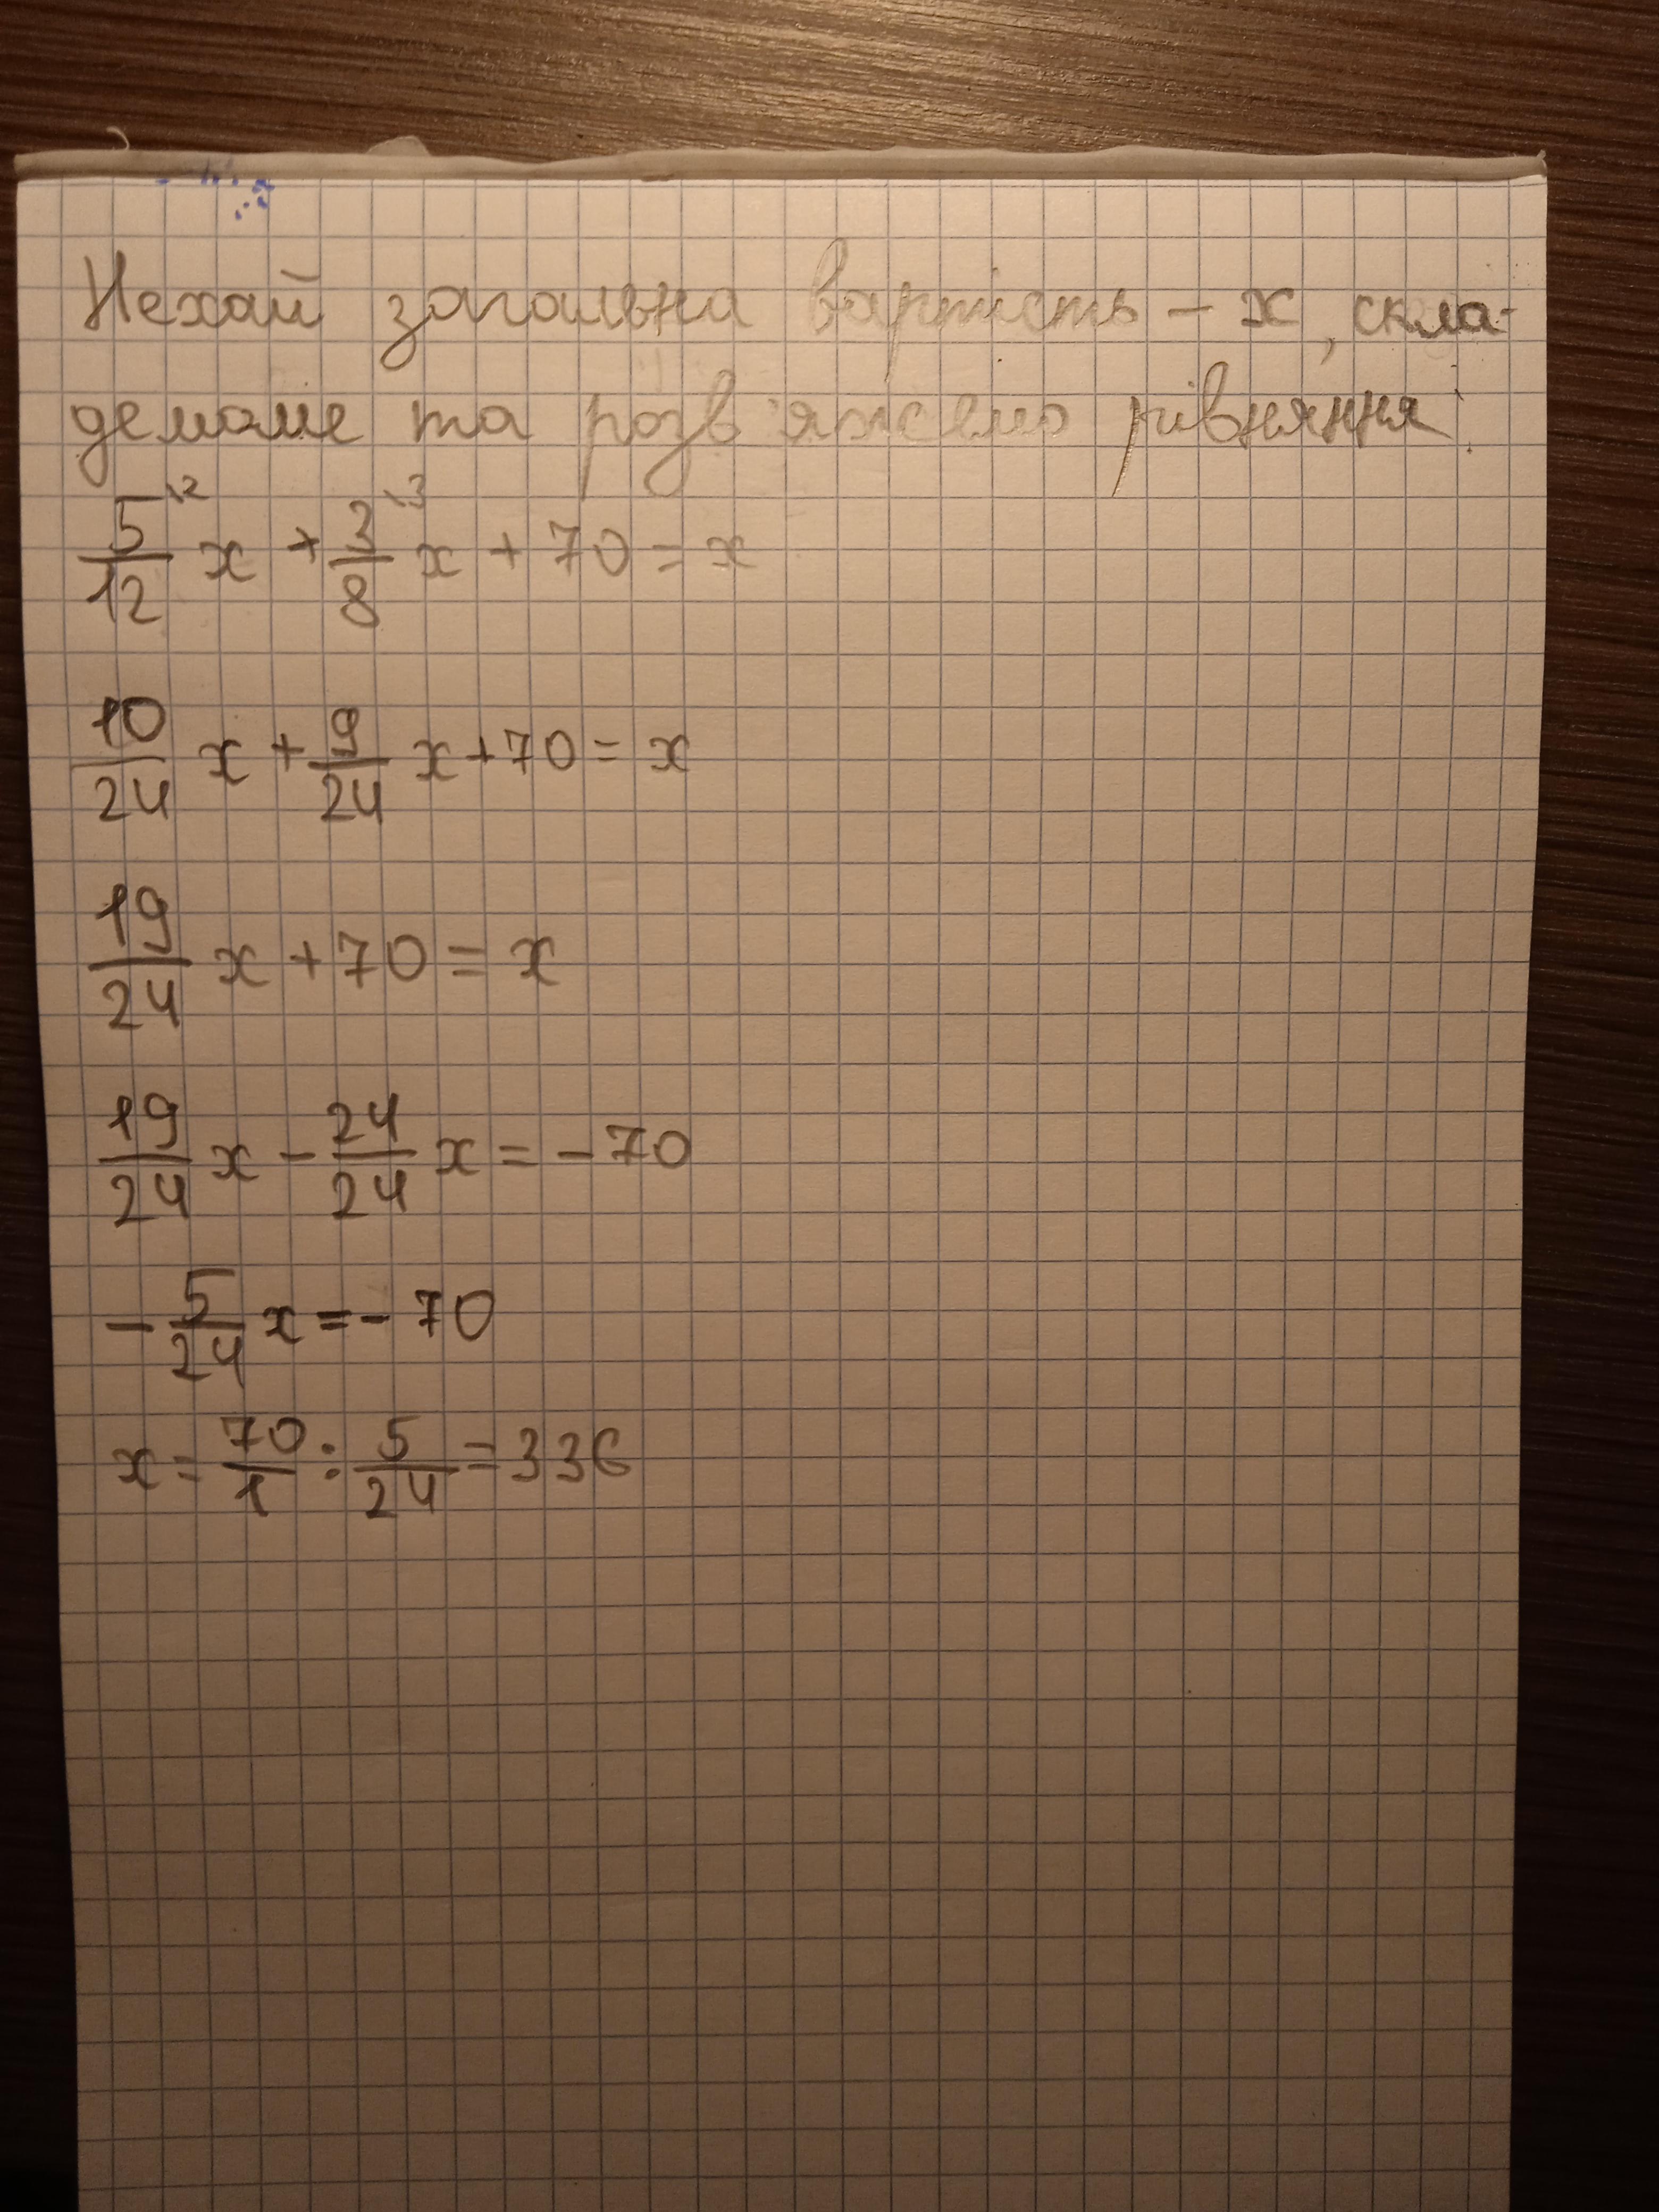 Нехай загальна вартість - x, скла-
демоме та розв'яжемо рівняння:
5/12 \2 x + 3/8 \3 x + 70 = x
10/24 x + 9/24 x + 70 = x
19/24 x + 70 = x
19/24 x - 24/24 x = - 70
- 5/24 x = - 70
x = 70/1 : 5/24 = 336